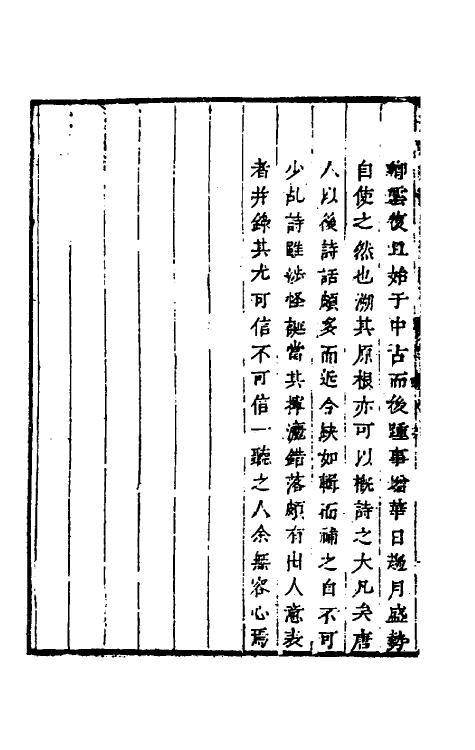 卿雲復旦始于中古而後踵事增華日趨月盛勢
自使之然也溯其原根亦可以概詩之大凡矣唐
人以後詩話頗多而近今缺如輯而補之自不可
少乩詩雖涉怪誕當其揮灑錯落頗有出人意表
者并錄其尤可信不可信一聽之人余無容心焉